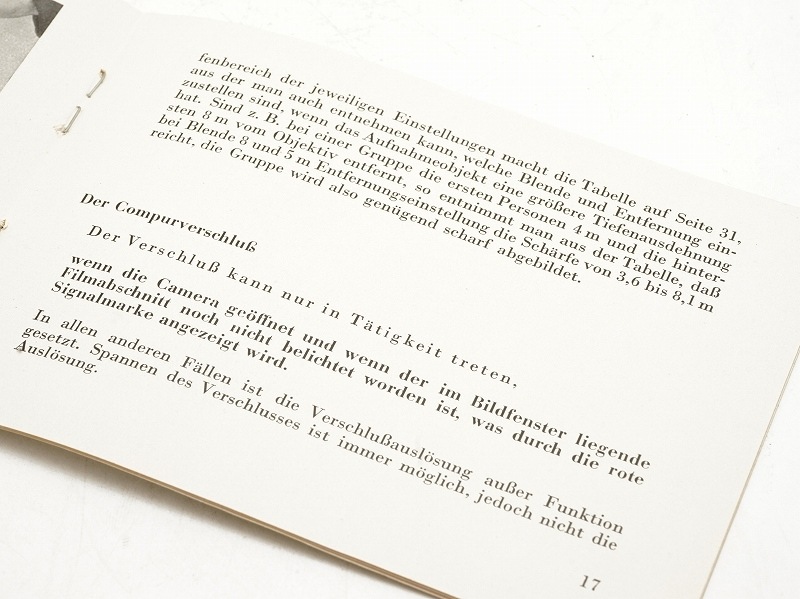 fenbereich der jeweiligen Einstellungen macht die Tabelle auf Seite 31,
aus der man auch entnehmen kann, welche Blende und Entfernung ein-
zustellen sind, wenn das Aufnahmeobjekt eine größere Tiefenausdehnung
hat. Sind z. B. bei einer Gruppe die ersten Personen 4 m und die hinter-
sten 8 m vom Objektiv entfernt, so entnimmt man aus der Tabelle, daß
bei Blende 8 und 5 m Entfernungseinstellung die Schärfe von 3,6 bis 8,1 m
reicht, die Gruppe wird also genügend scharf abgebildet.
Der Compurverschluß
Der Verschluß kann nur in Tätigkeit treten,
wenn die Camera geöffnet und wenn der im Bildfenster liegende
Filmabschnitt noch nicht belichtet worden ist, was durch die rote
Signalmarke angezeigt wird.
In allen anderen Fällen ist die Verschlußauslösung außer Funktion
gesetzt. Spannen des Verschlusses ist immer möglich, jedoch nicht die
Auslösung.
17